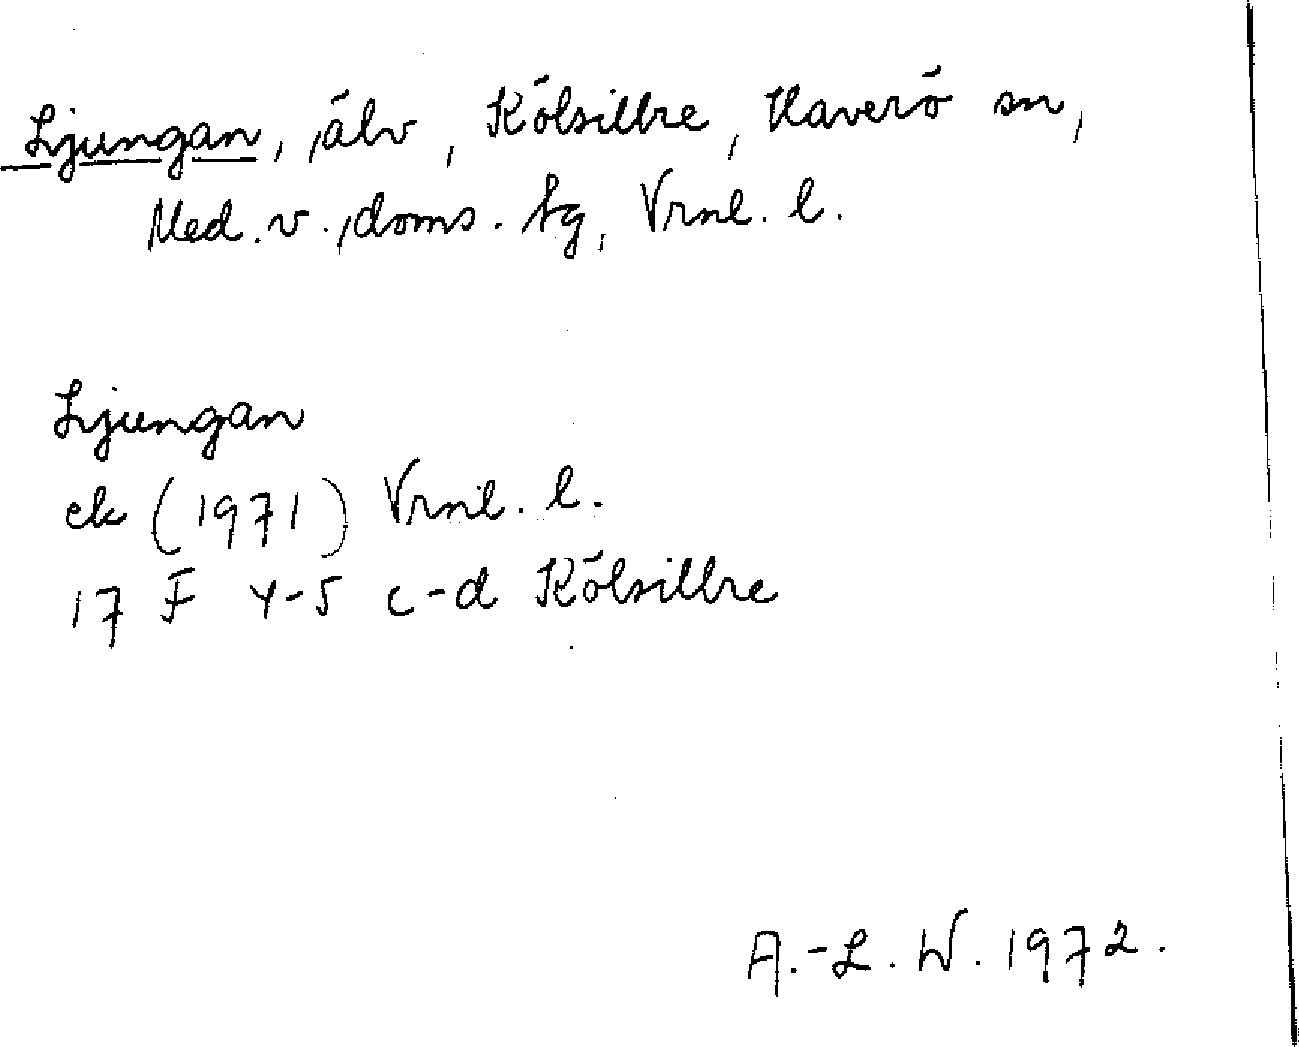 Ljungan, älv, Kölsillre, Haverö sn,
Med. v. doms. tg, Vrnl. l.
Ljungan
ek (1971) Vrnl. l.
17 F 4-5 c-d Kölsillre
A.-L. W. 1972.